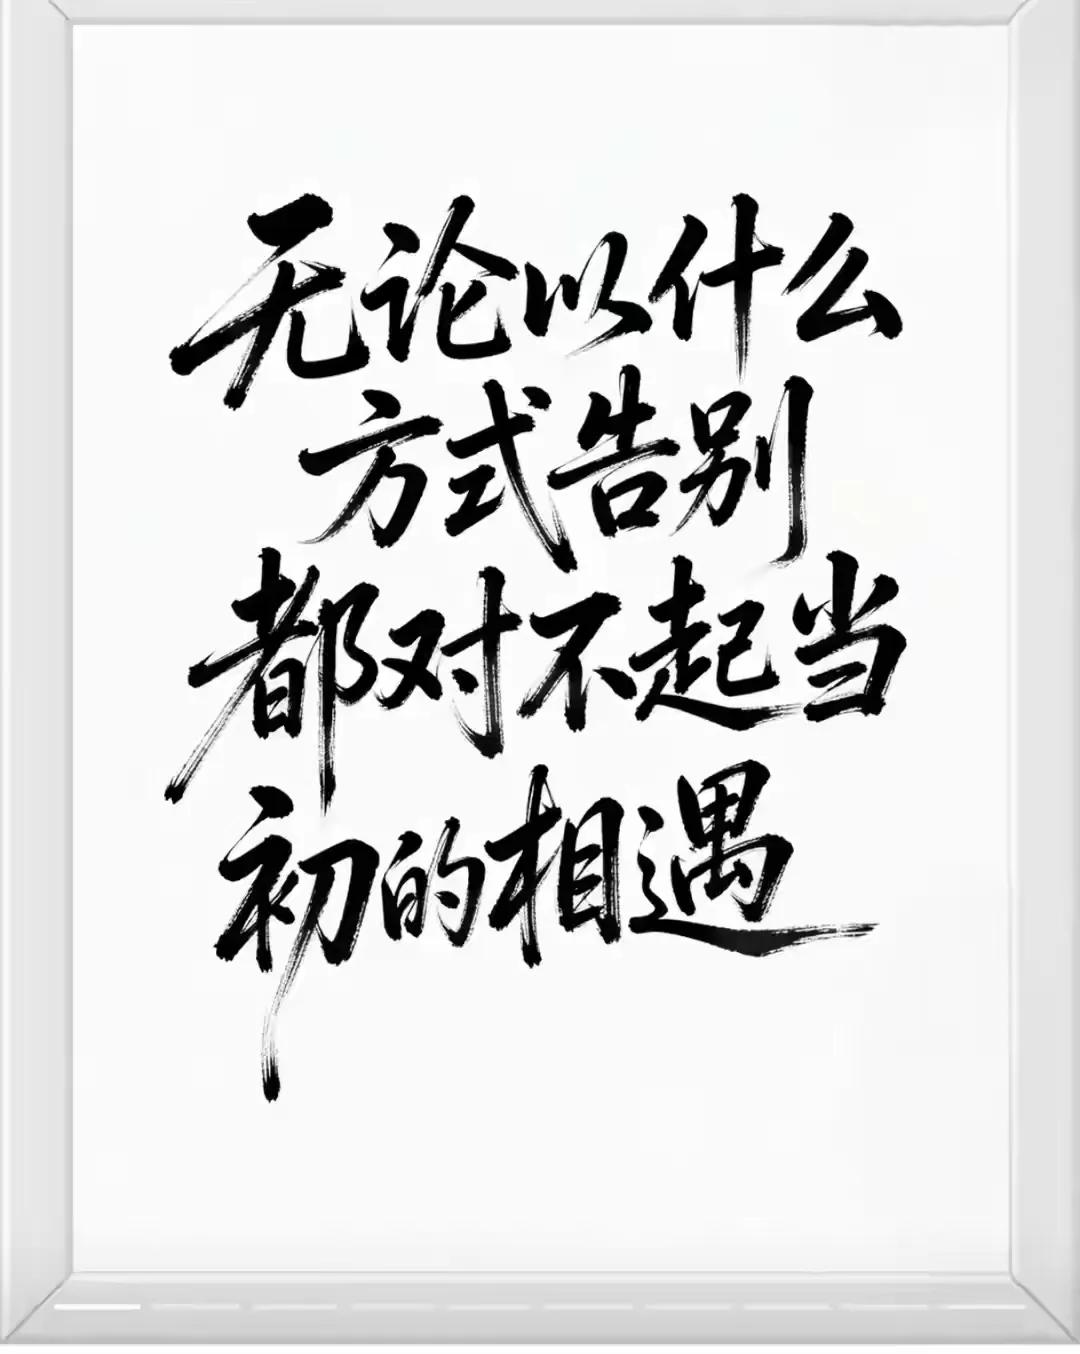 无论以什么
方式告别
都对不起当
初的相遇